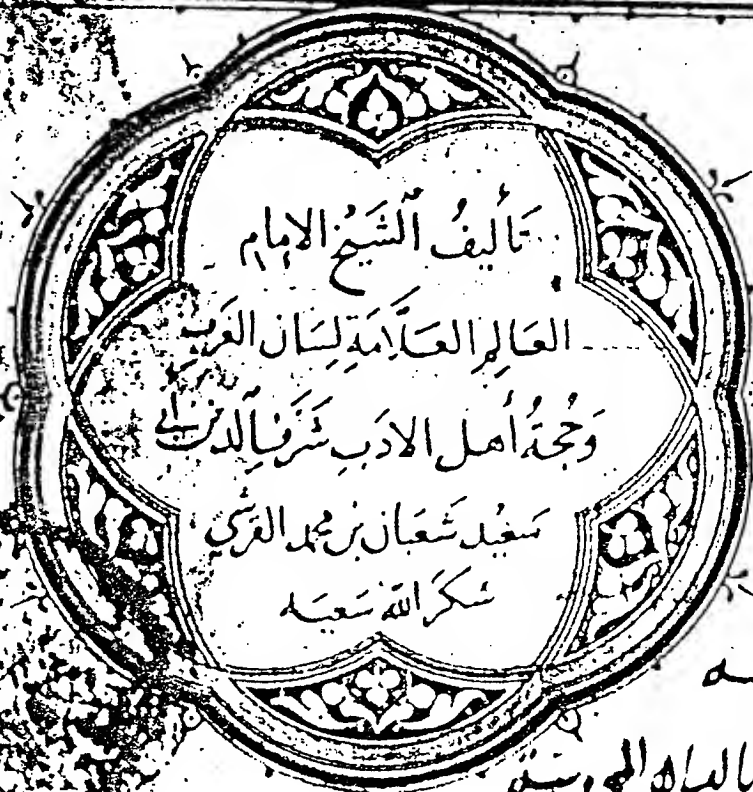 تَأليفُ الشَّيْخِ الامام
العَالِمِ العَلَّامَةِ لِسَان العَرَبِ
وَحُجَّةُ أَهل الادَبِ شَرَف الدين أبي
سَعيْد شَعْبَان بن محمد القرشي
شكَرَ اللَّه سَعيَه